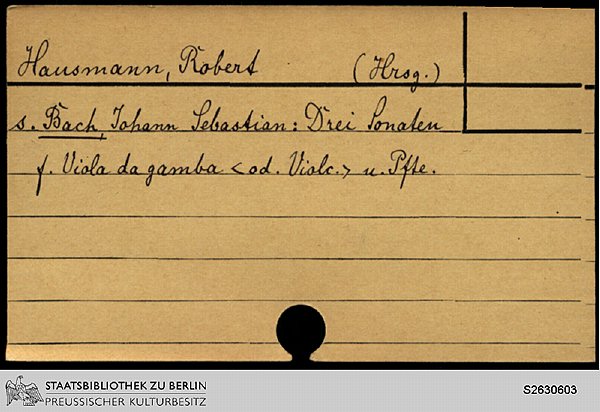 Hausmann, Robert (Hrsg.)
s. Bach, Johann Sebastian: Drei Sonaten
f. Viola da gamba <od. Violc.> u. Pfte.
STAATSBIBLIOTHEK ZU BERLIN
PREUSSISCHER KULTURBESITZ
S2630603